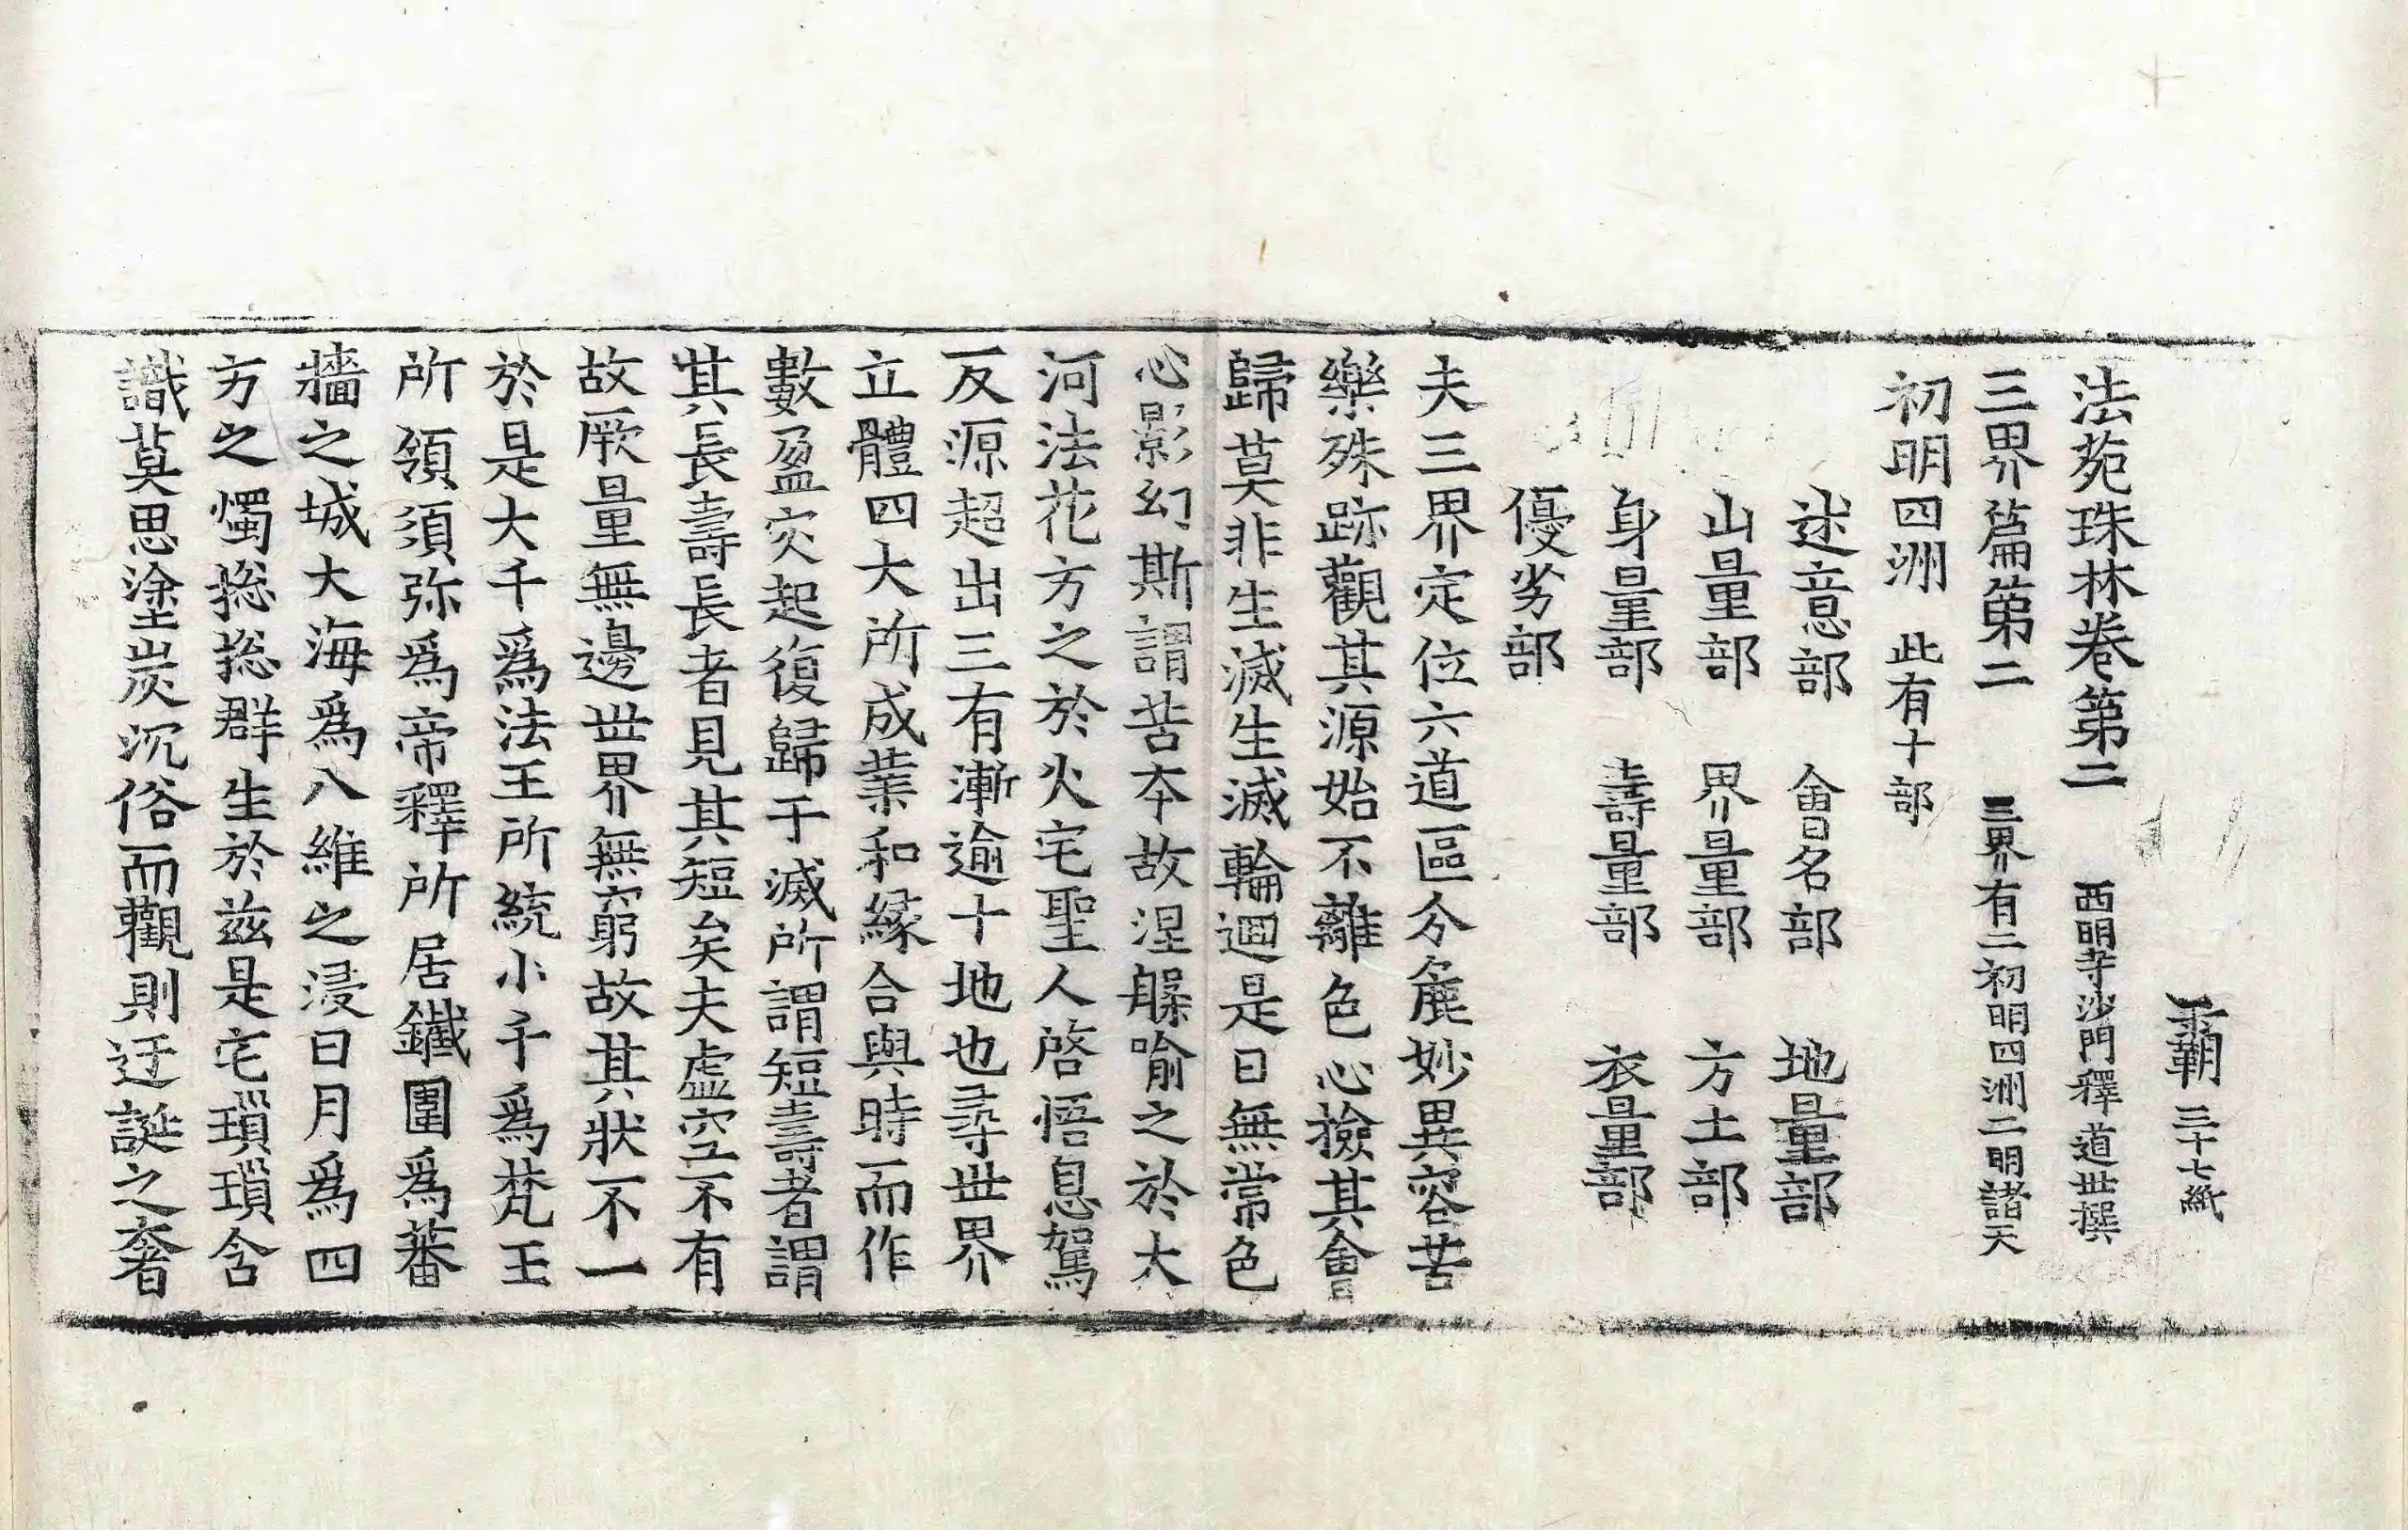 霸 三十七紙
法苑珠林卷第二 西明寺沙門釋道世撰
三界篇第二 三界有二初明四洲二明諸天
初明四洲 此有十部
述意部 會名部 地量部
山量部 界量部 方土部
身量部 壽量部 衣量部
優劣部
夫三界定位六道區分麁妙異容苦
樂殊跡觀其源始不離色心撿其會
歸莫非生滅生滅輪迴是曰無常色
心影幻斯謂苦夲故涅槃喻之於大
河法花方之於火宅聖人啓悟息駕
反源超出三有漸逾十地也尋世界
立體四大所成業和緣合與時而作
數盈灾起復歸于滅所謂短壽者謂
其長壽長者見其短矣夫虛空不有
故厥量無邊世界無窮故其狀不一
於是大千爲法王所統小千爲梵王
所領須弥爲帝釋所居鐵圍爲蕃
牆之城大海爲八維之浸日月爲四
方之燭捴捴群生於兹是宅瑣瑣含
識莫思塗炭沉俗而觀則迂誕之奢